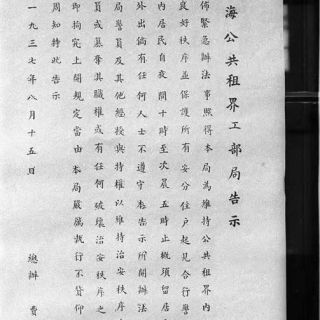 海公共租界工部局告示
佈緊急辦法事照得本局為維持公共租界內
良好秩序並保護所有安分住戶起見合行
內居民自夜間十時至次晨五時止概須留居
外出倘有任何人士不遵守本告示所開辦法
局警員及其他經授與特權以維持治安秩序
員或篡奪其職權或有任何破壞治安秩序之
即拘究上開規定當由本局嚴厲執行不貸仰
周知特此告示
一九三七年八月十五日
總辦 費